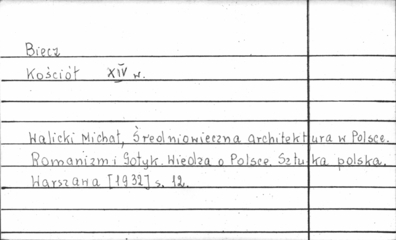 Biecz
Kościół XIV w.
Walicki Michał, Średniowieczna architektura w Polsce.
Romanizm i Gotyk. Wiedza o Polsce. Sztuka polska.
Warszawa [1932] s. 12.